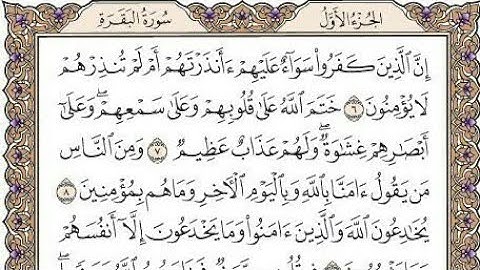 الجُزْءُ الأَوَّلُ سُورَةُ البَقَرَةِ
إِنَّ ٱلَّذِينَ كَفَرُوا۟ سَوَآءٌ عَلَيْهِمْ ءَأَنذَرْتَهُمْ أَمْ لَمْ تُنذِرْهُمْ
لَا يُؤْمِنُونَ ٦ خَتَمَ ٱللَّهُ عَلَىٰ قُلُوبِهِمْ وَعَلَىٰ سَمْعِهِمْ ۖ وَعَلَىٰٓ
أَبْصَٰرِهِمْ غِشَٰوَةٌ ۖ وَلَهُمْ عَذَابٌ عَظِيمٌ ٧ وَمِنَ ٱلنَّاسِ
مَن يَقُولُ ءَامَنَّا بِٱللَّهِ وَبِٱلْيَوْمِ ٱلْـَٔاخِرِ وَمَا هُم بِمُؤْمِنِينَ ٨
يُخَٰدِعُونَ ٱللَّهَ وَٱلَّذِينَ ءَامَنُوا۟ وَمَا يَخْدَعُونَ إِلَّآ أَنفُسَهُمْ